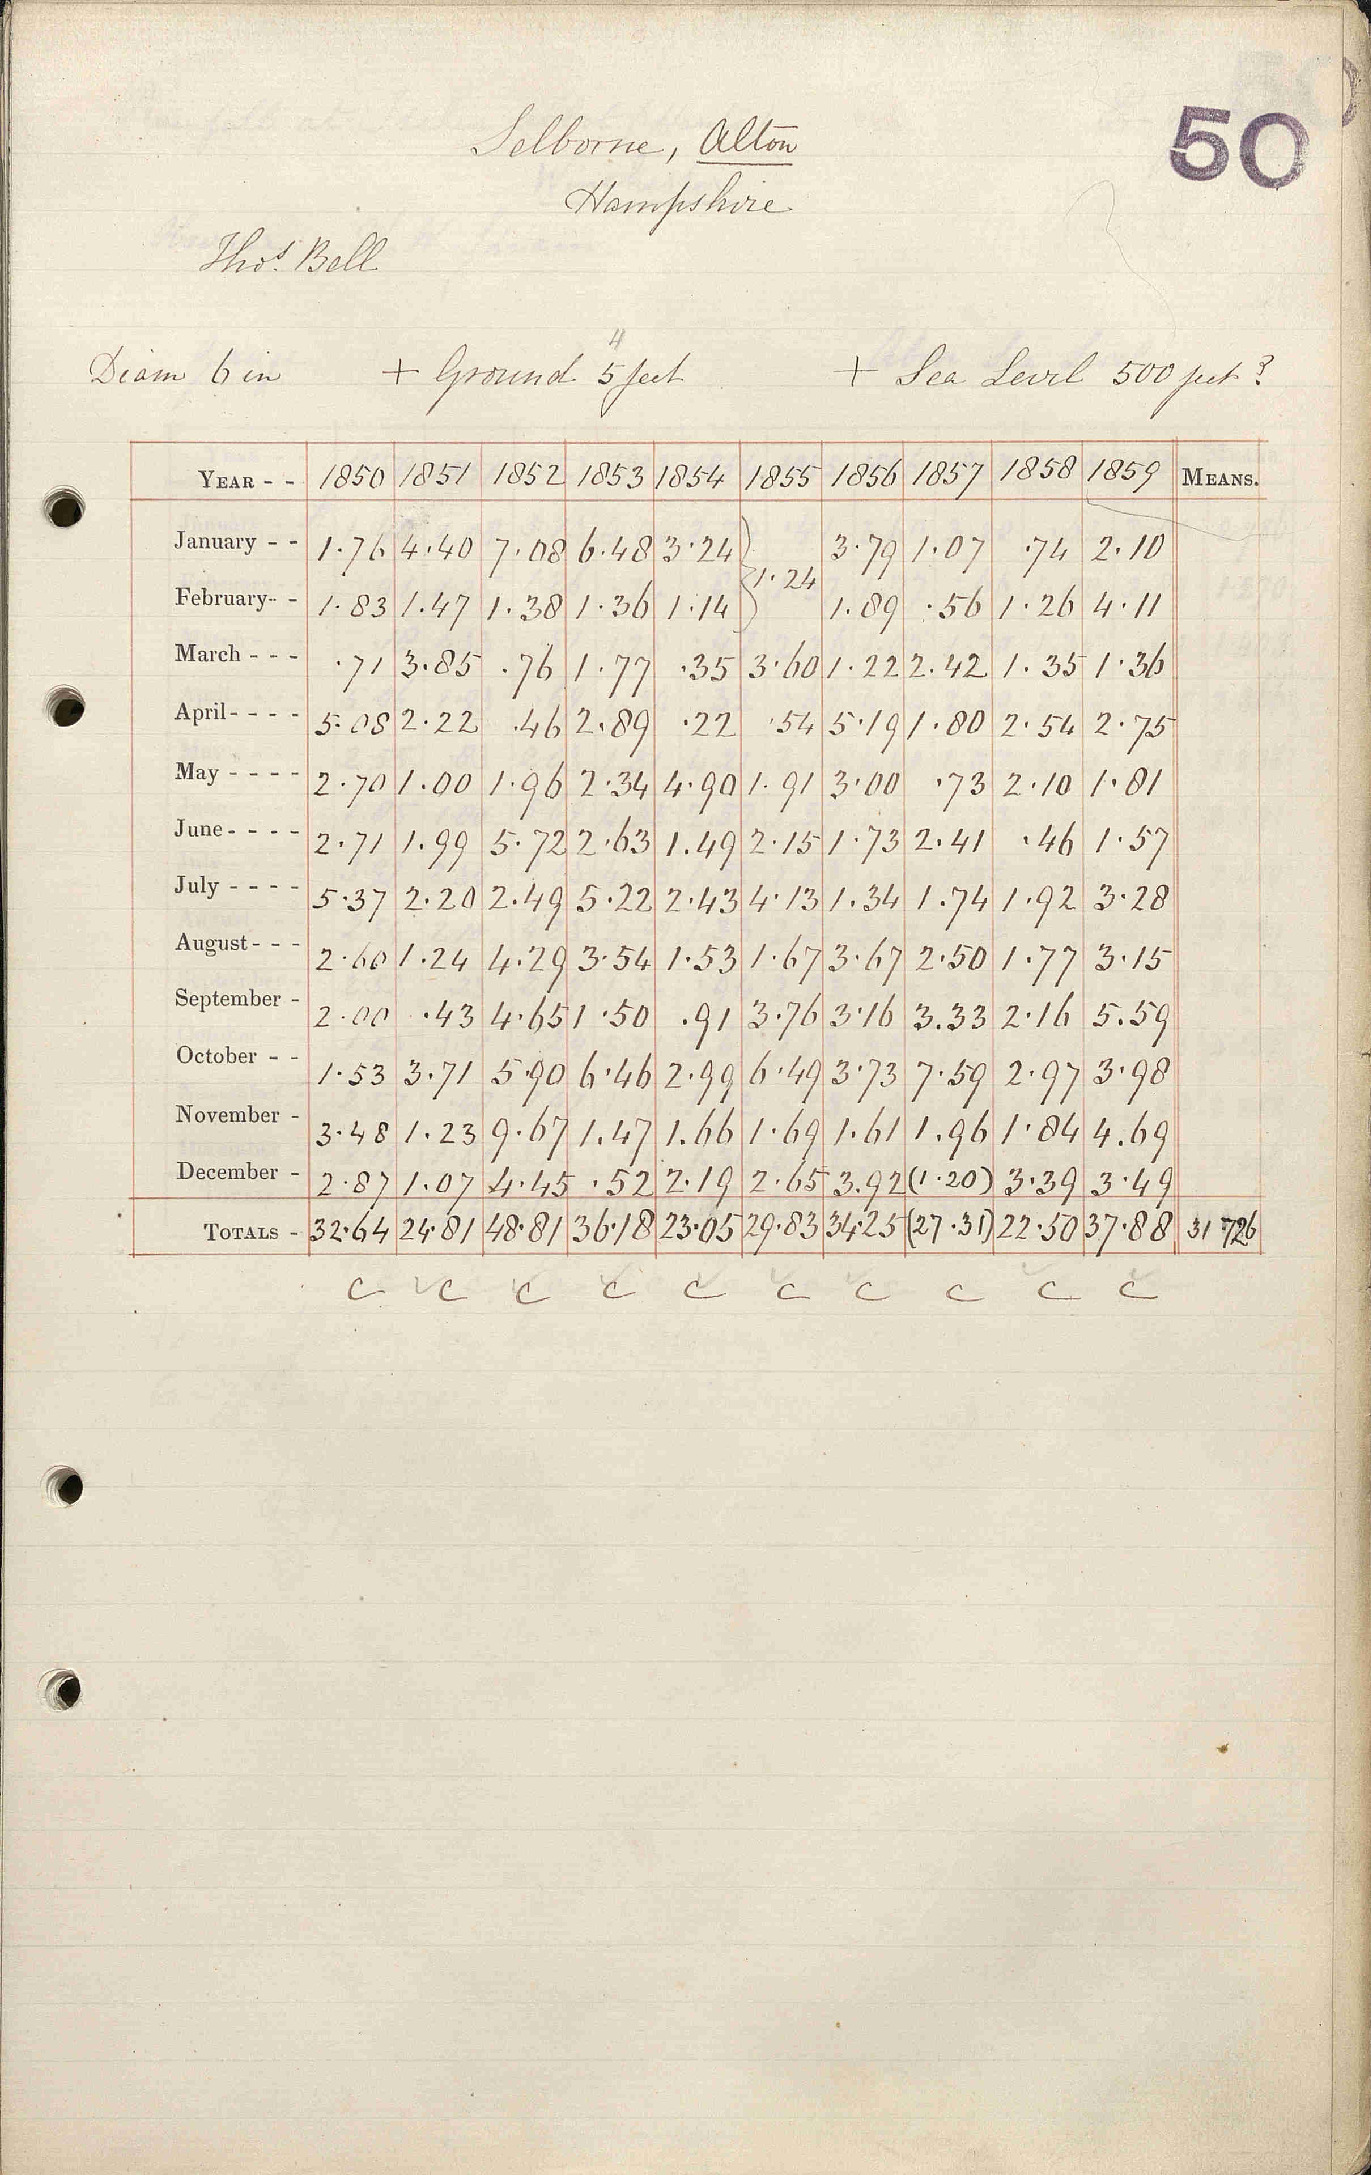 50
Selborne, Alton
Hampshire
Thos. Bell
4
Diam 6 in + Ground 5 feet + Sea Level 500 feet ?
YEAR - - 1850 1851 1852 1853 1854 1855 1856 1857 1858 1859 MEANS.
January - - 1.76 4.40 7.08 6.48 3.24 } 3.79 1.07 .74 2.10
1.24
February - - 1.83 1.47 1.38 1.36 1.14 1.89 .56 1.26 4.11
March - - - .71 3.85 .76 1.77 .35 3.60 1.22 2.42 1.35 1.36
April - - - - 5.08 2.22 .46 2.89 .22 .54 5.19 1.80 2.54 2.75
May - - - - 2.70 1.00 1.96 2.34 4.90 1.91 3.00 .73 2.10 1.81
June - - - - 2.71 1.99 5.72 2.63 1.49 2.15 1.73 2.41 .46 1.57
July - - - - 5.37 2.20 2.49 5.22 2.43 4.13 1.34 1.74 1.92 3.28
August - - - 2.60 1.24 4.29 3.54 1.53 1.67 3.67 2.50 1.77 3.15
September - 2.00 .43 4.65 1.50 .91 3.76 3.16 3.33 2.16 5.59
October - - 1.53 3.71 5.90 6.46 2.99 6.49 3.73 7.59 2.97 3.98
November - 3.48 1.23 9.67 1.47 1.66 1.69 1.61 1.96 1.84 4.69
December - 2.87 1.07 4.45 .52 2.19 2.65 3.92 (1.20) 3.39 3.49
TOTALS - 32.64 24.81 48.81 36.18 23.05 29.83 34.25 (27.31) 22.50 37.88 31.726
C C C C C C C C C C